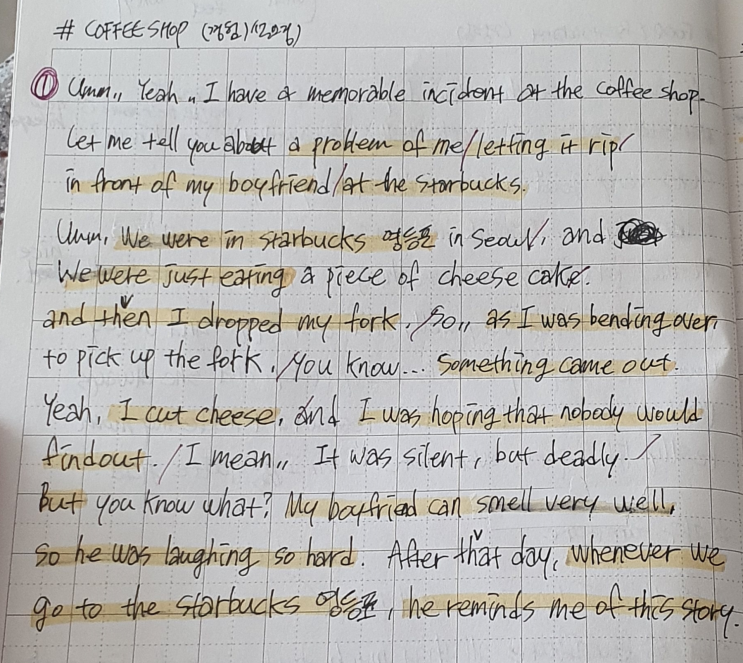 # COFFEE SHOP (경험)
① Umm,, Yeah,, I have a memorable incident at the coffee shop.
Let me tell you about a problem of me/letting it rip/
in front of my boyfriend/at the Starbucks.
Umm, We were in Starbucks 영등포 in Seoul, and
We were just eating a piece of cheese cake.
and then I dropped my fork. /So,, as I was bending over,
to pick up the fork. /You know... Something came out.
Yeah, I cut cheese, and I was hoping that nobody would
findout. / I mean,, It was silent, but deadly. /
But you know what? My boyfried can smell very well,
so he was laughing so hard. After that day, whenever we
go to the starbucks 영등포, he reminds me of this story.